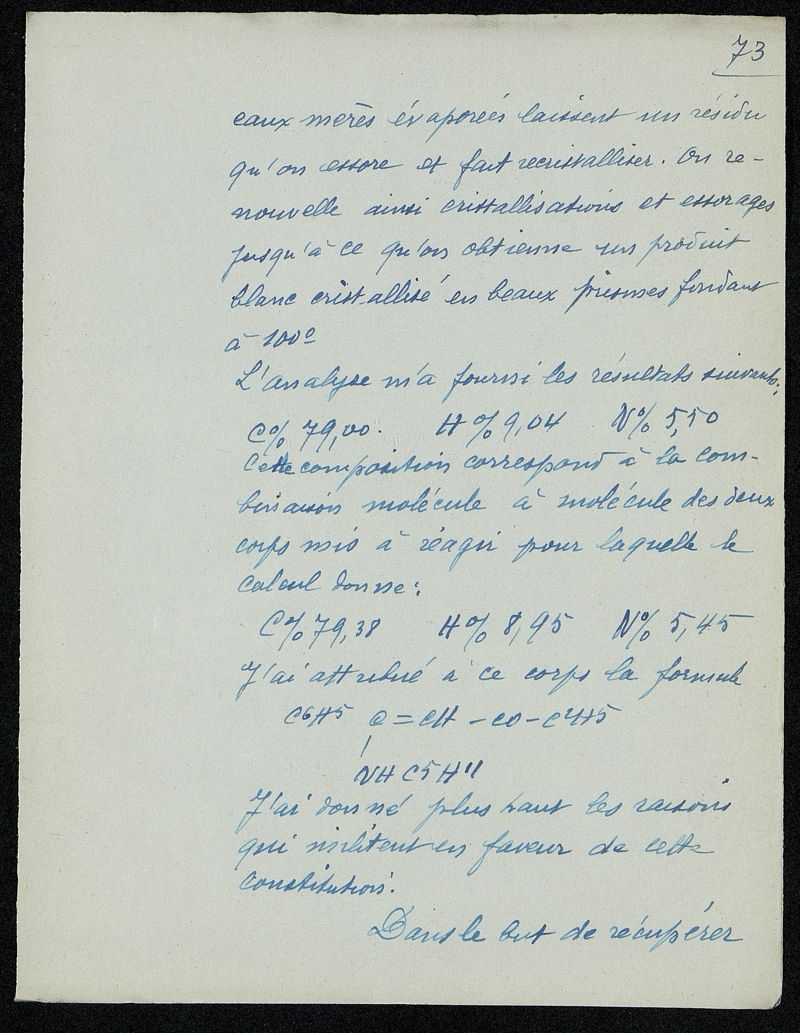 73
eaux mères évaporées laissent un résidu
qu'on essore et fait recristalliser. On re-
nouvelle ainsi cristallisations et essorages
jusqu'à ce qu'on obtienne un produit
blanc cristallisé en beaux prismes fondant
à 100°
L'analyse m'a fourni les résultats suivants:
C% 79,00. H% 9,04 N% 5,50
Cette composition correspond à la com-
binaison molécule à molécule des deux
corps mis à réagir pour laquelle le
calcul donne:
C% 79,38 H% 8,95 N% 5,45
J'ai attribué à ce corps la formule
C6H5 C = CH - CO - C4H5
NH C5H11
J'ai donné plus haut les raisons
qui militent en faveur de cette
constitution.
Dans le but de récupérer